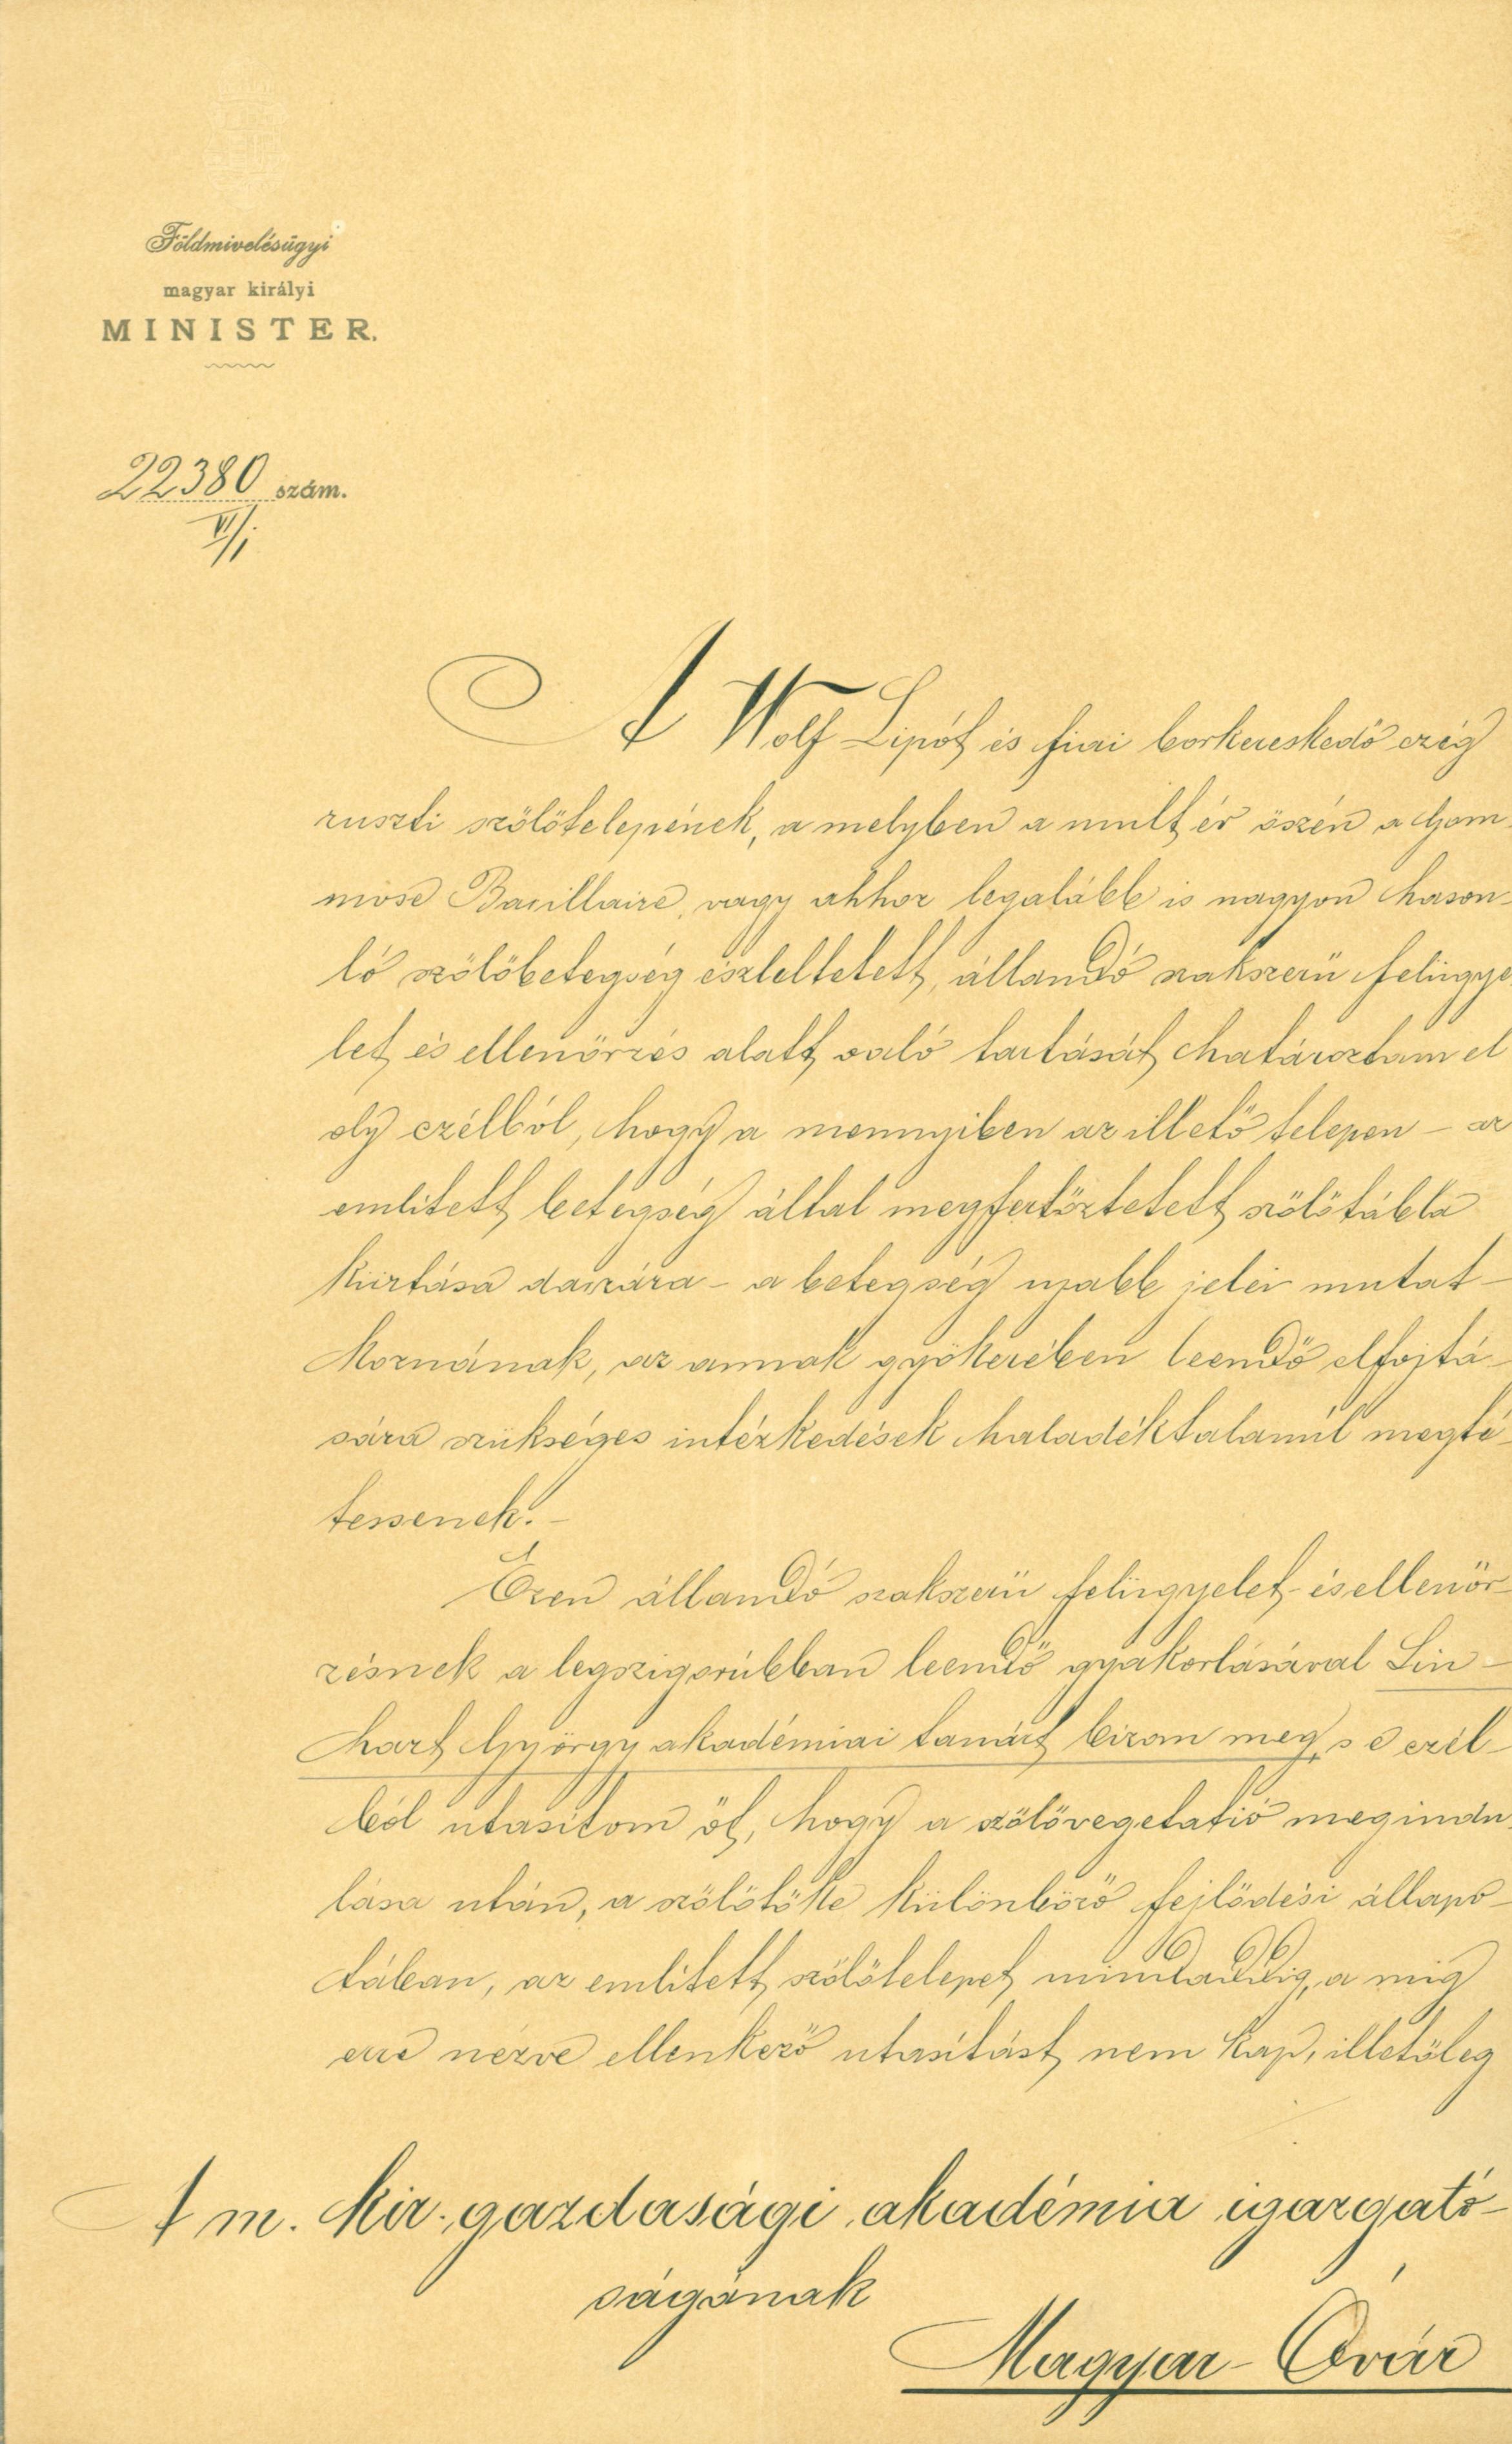 Földmivelésügyi
magyar királyi
MINISTER.
22380 szám.
VI/1
A Wolf Lipót és fiai borkereskedő czég
ruszti szőlőtelepének, a melyben a mult év őszén a Gom-
mose Bacillaire, vagy ahhoz legalább is nagyon hason-
ló szőlőbetegség észleltetett, állandó szakszerü felügye
let és ellenőrzés alatt való tartását határoztam el
oly czélból, hogy a mennyiben az illető telepen – az
emlitett betegség által megfertőztetett szőlőtábla
kiirtása daczára – a betegség ujabb jelei mutat-
koznának, az annak gyökerében leendő elfojtá-
sára szükséges intézkedések haladéktalanúl megté-
tessenek. –
Ezen állandó szakszerü felügyelet- és ellenőr-
zésnek a legszigorúbban leendő gyakorlásával Lin-
hart György akadémiai tanárt bizom meg, s e czél-
ból utasitom őt, hogy a szőlővegetatió megindu-
lása után, a szőlőtőke különböző fejlődési állapo-
tában, az emlitett szőlőtelepet mindaddig, a mig
erre nézve ellenkező utasítást nem kap, illetőleg
A m. kir. gazdasági akadémia igazgató-
ságának
Magyar-Óvár